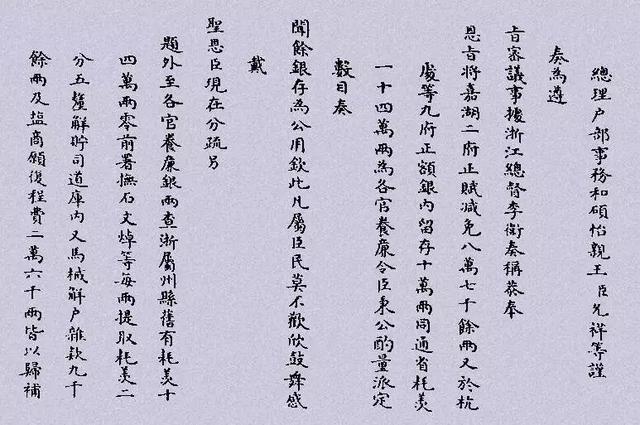 總理戶部事務和碩怡親王臣允祥等謹
奏為遵
旨審議事據浙江總督李衛奏稱恭奉
恩旨將嘉湖二府正賦減免八萬七千餘兩又於杭
處等九府正額銀內留存十萬兩同通省耗羨
一十四萬兩為各官養廉令臣秉公酌量派定
數目奏
聞餘銀存為公用欽此凡屬臣民莫不歡欣鼓舞感
戴
聖恩臣現在分疏另
題外至各官養廉銀兩查浙屬州縣舊有耗羨十
四萬兩零前署撫石文焯等每兩提取耗羨二
分五釐解貯司道庫內又馬械解戶雜款九千
餘兩及塩商願復程費二萬六千兩皆以歸補